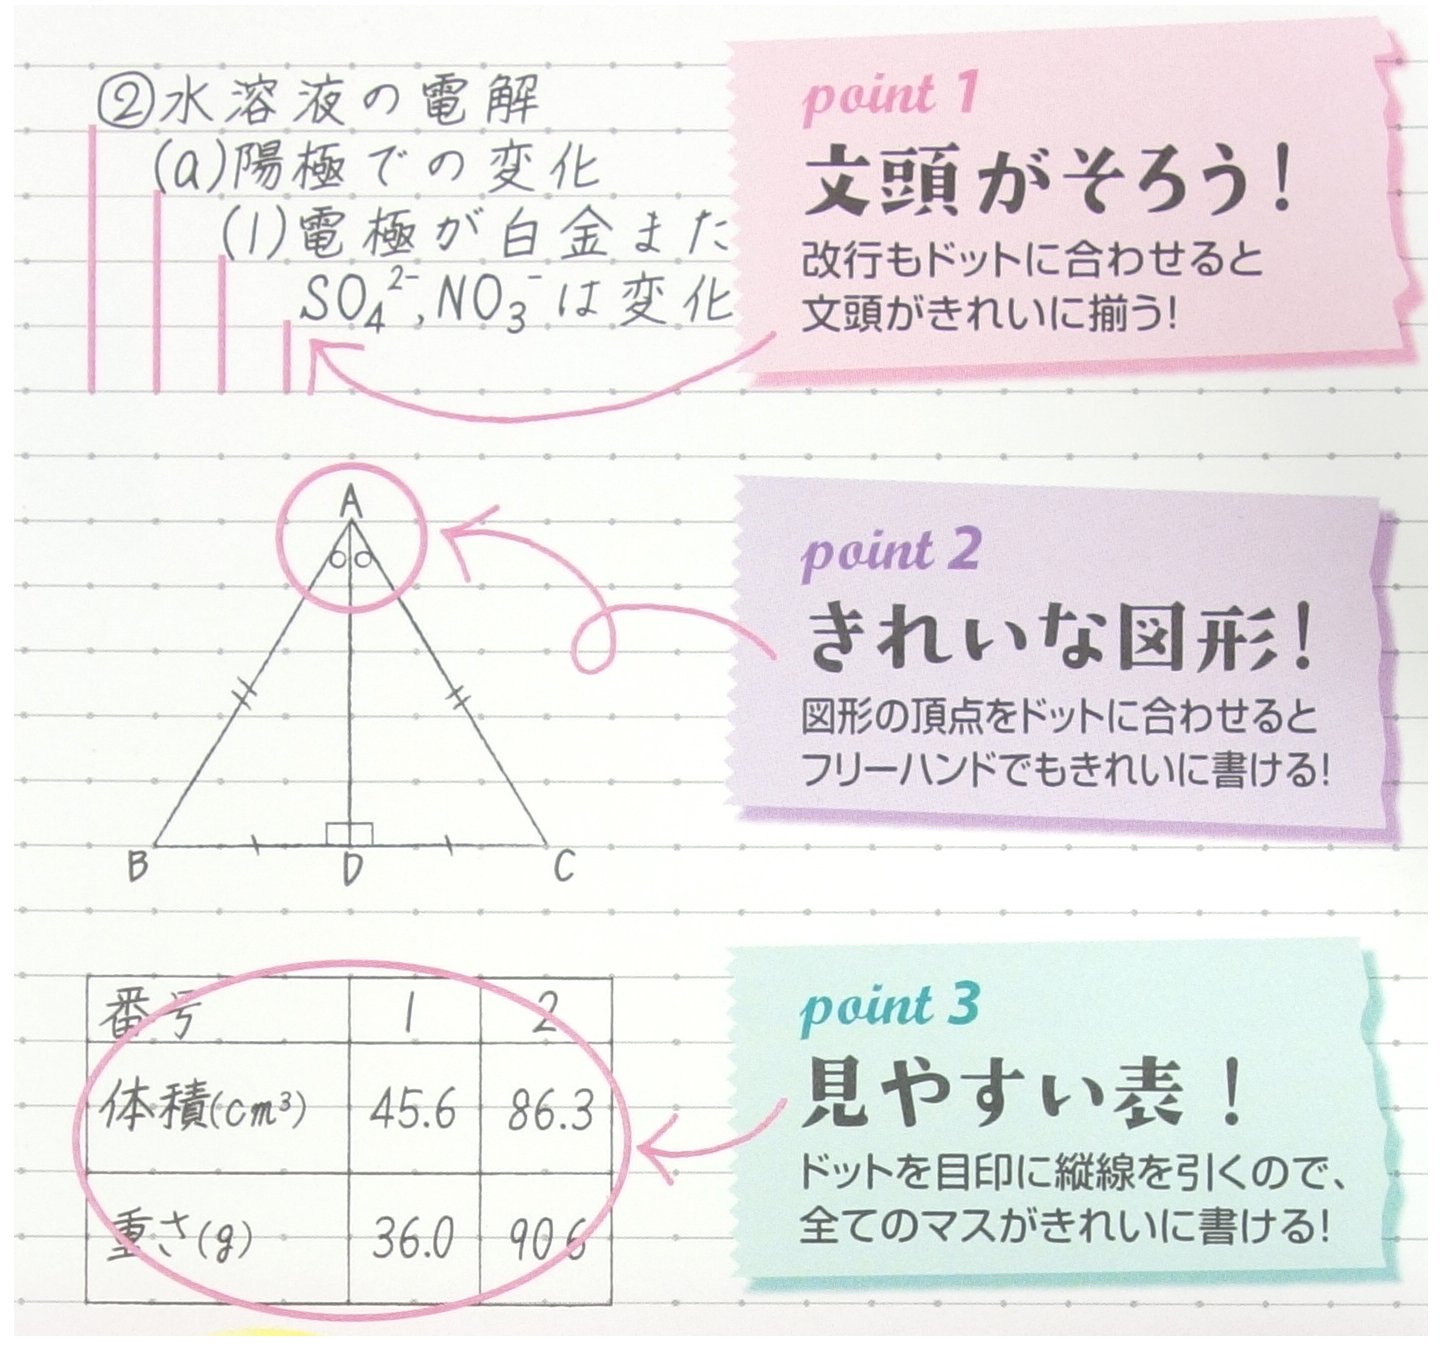 ②水溶液の電解
(a)陽極での変化
(1)電極が白金また
SO₄²⁻,NO₃⁻は変化
point 1
文頭がそろう!
改行もドットに合わせると
文頭がきれいに揃う!
A
B
D
C
point 2
きれいな図形!
図形の頂点をドットに合わせると
フリーハンドでもきれいに書ける!
番号 1 2
体積(cm³) 45.6 86.3
重さ(g) 36.0 90.6
point 3
見やすい表!
ドットを目印に縦線を引くので、
全てのマスがきれいに書ける!